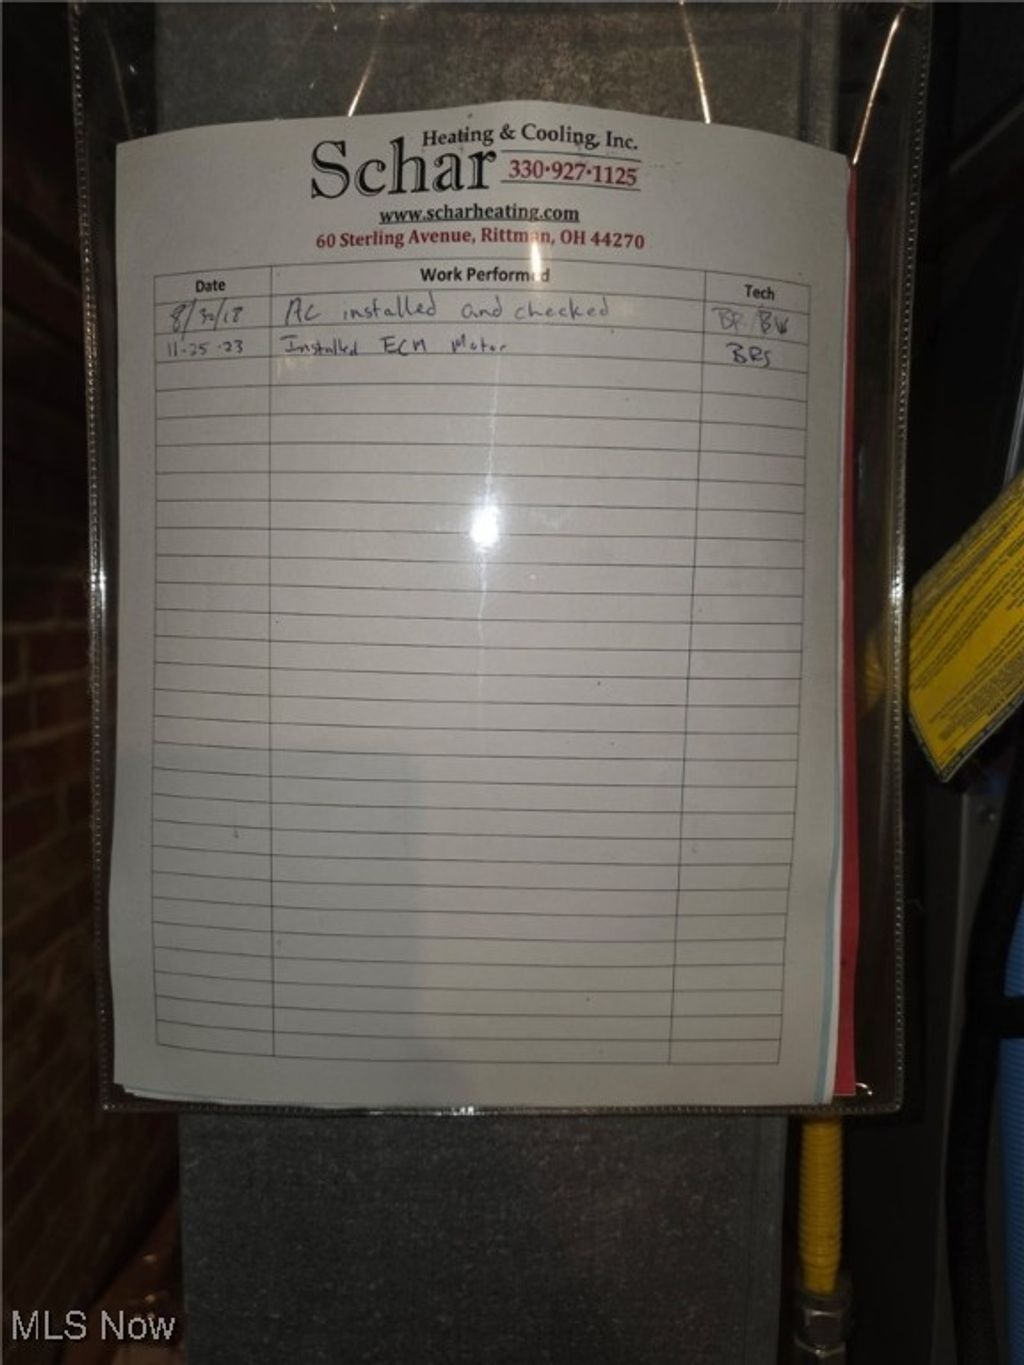 Heating & Cooling, Inc.
Schar 330·927·1125
www.scharheating.com
60 Sterling Avenue, Rittman, OH 44270
Date Work Performed Tech
8/30/18 AC installed and checked BR/BW
11-25-23 Installed ECM Motor BRS
MLS Now